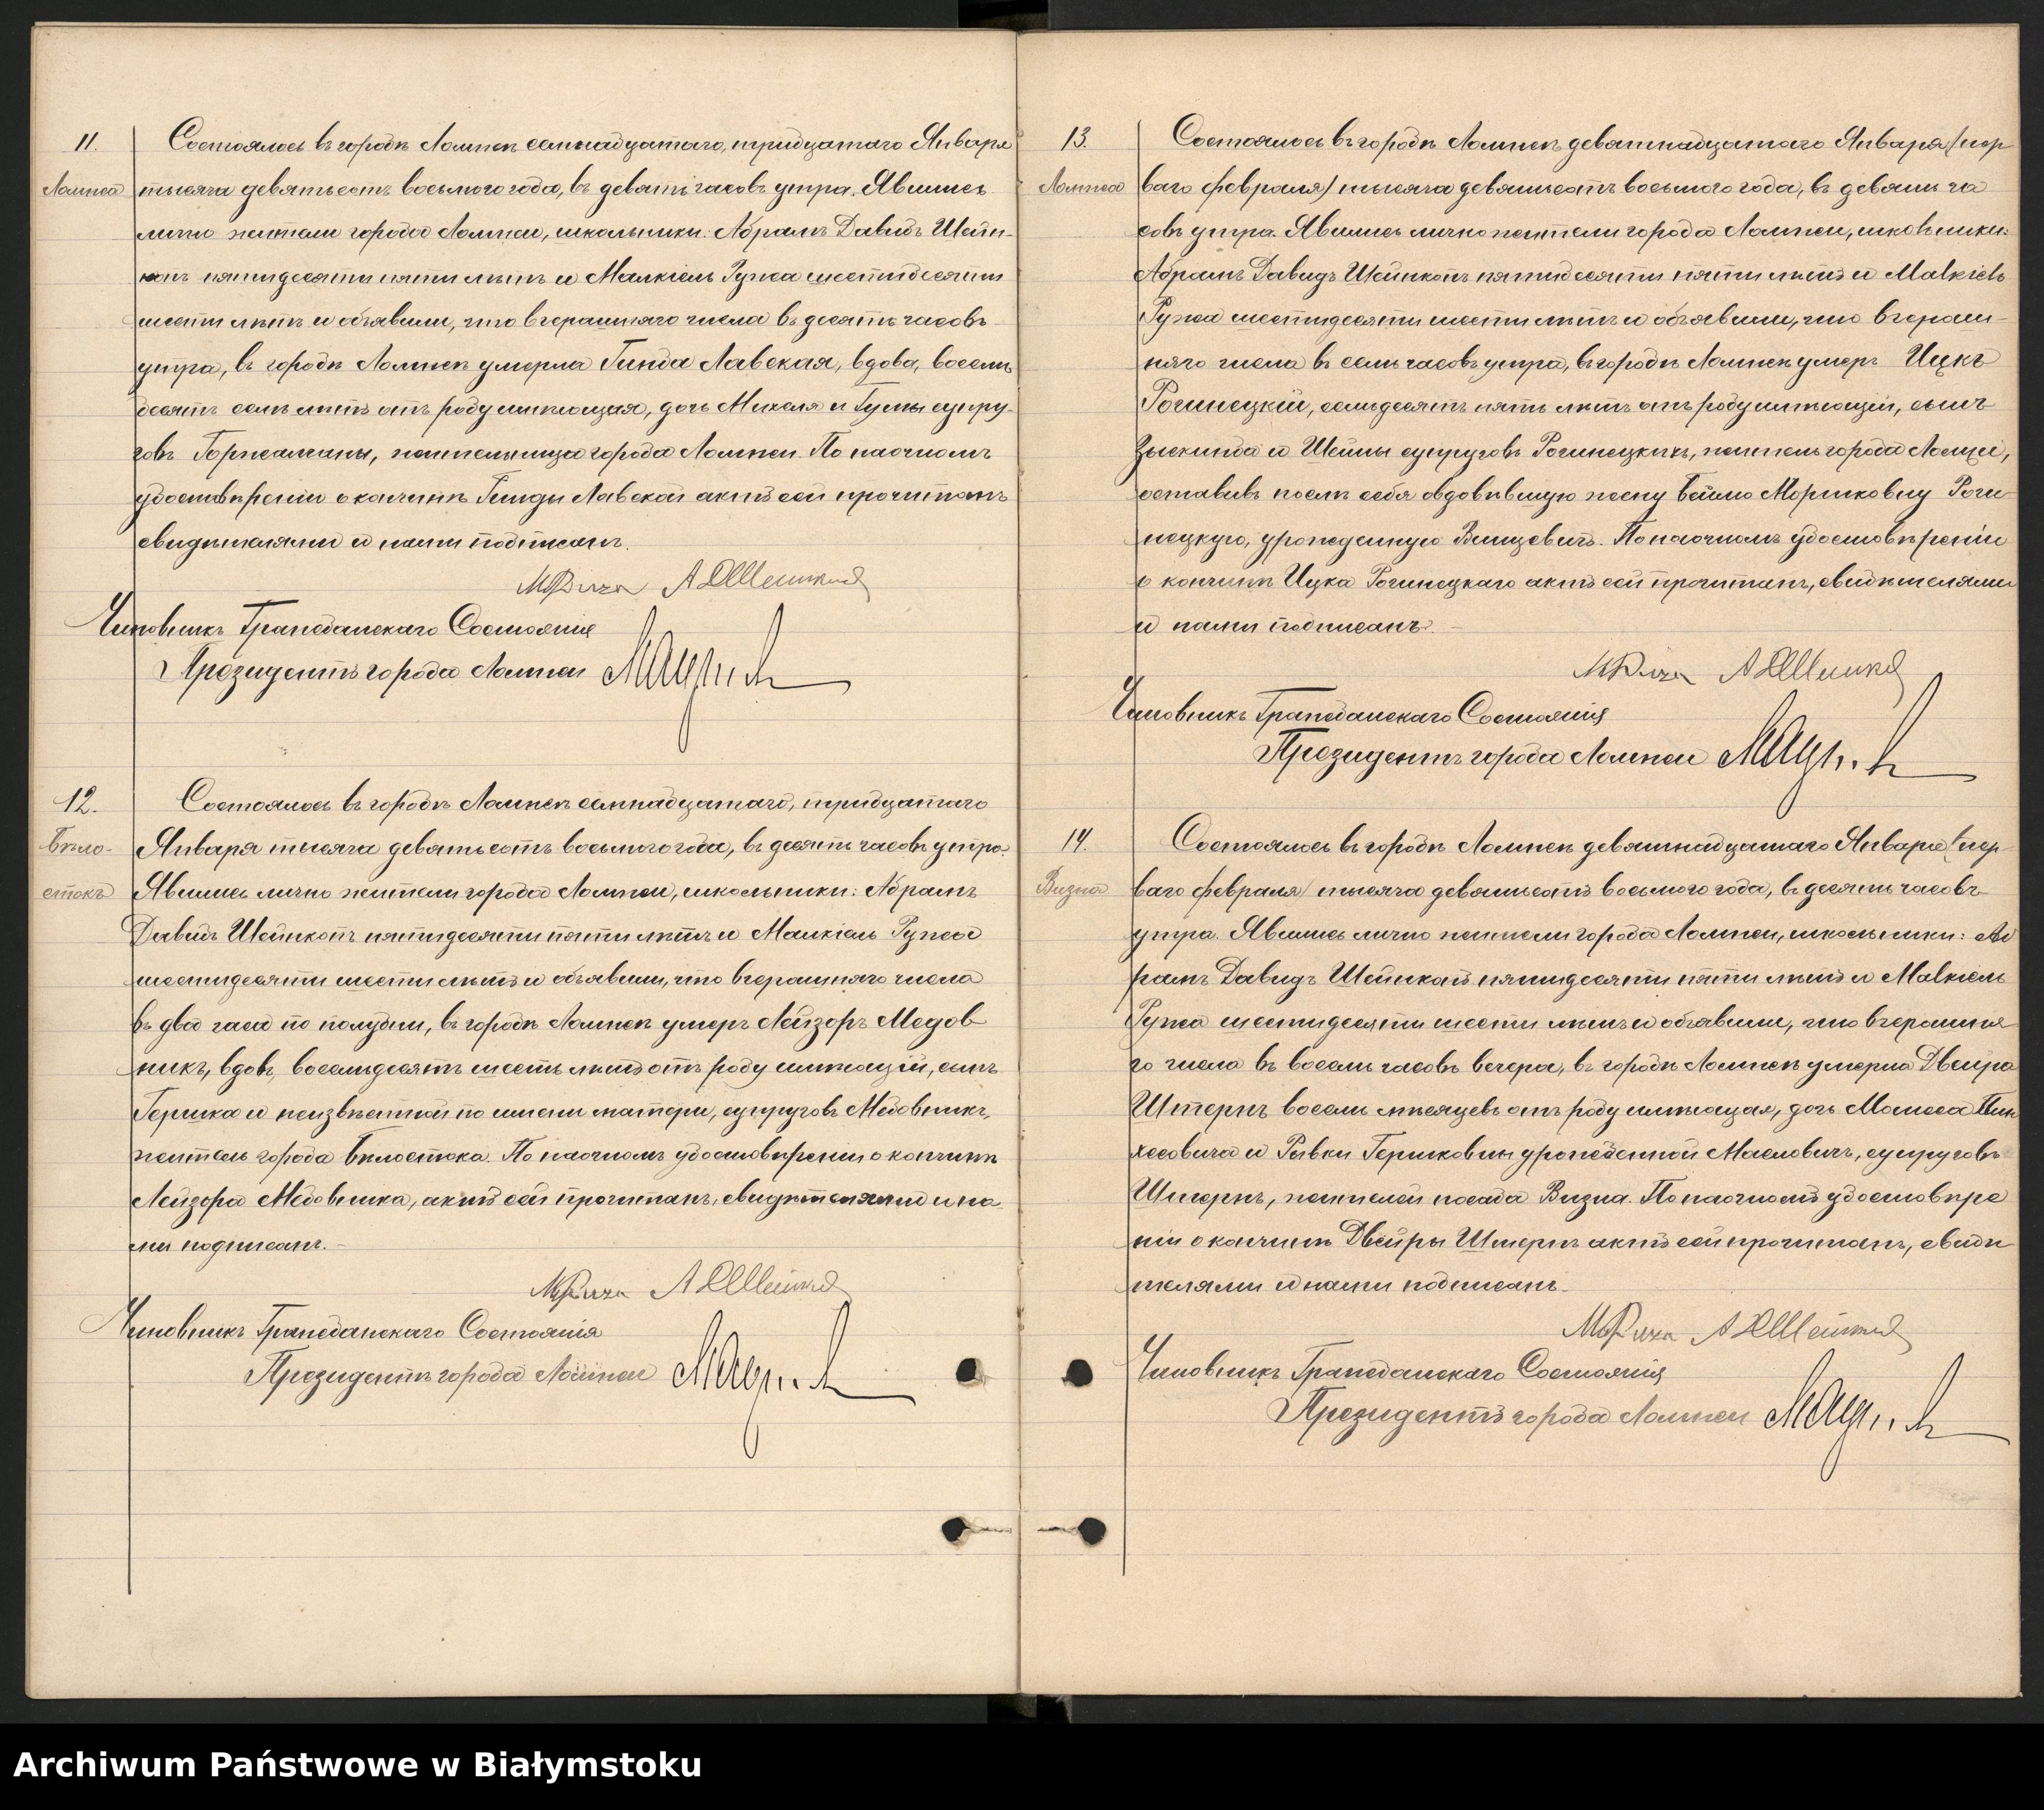 11.
Ломжа
Состоялось въ городѣ Ломжѣ семнадцатаго, тридцатаго Января
тысяча девятьсотъ восьмого года, въ девять часовъ утра. Явились
лично жители города Ломжи, школьники: Абрамъ Давидъ Шейн-
копъ пятидесяти пяти лѣтъ и Малкіель Ружа шестидесяти
шести лѣтъ и объявили, что вчерашняго числа въ десять часовъ
утра, въ городѣ Ломжѣ умерла Гинда Лавская, вдова, восемь
десятъ семь лѣтъ отъ роду имѣющая, дочь Михеля и Гумы супру-
говъ Горжалчаны, жительница города Ломжи. По наочномъ
удостовѣреніи о кончинѣ Гинды Лавской актъ сей прочитанъ
свидѣтелями и нами подписанъ.
Чиновникъ Гражданскаго Состоянія
Президентъ города Ломжи
12.
Бѣло-
стокъ
Состоялось въ городѣ Ломжѣ семнадцатаго, тридцатаго
Января тысяча девятьсотъ восьмого года, въ десять часовъ утра.
Явились лично жители города Ломжи, школьники: Абрамъ
Давидъ Шейнкопъ пятидесяти пяти лѣтъ и Малкіель Ружа
шестидесяти шести лѣтъ и объявили, что вчерашняго числа
въ два часа по полудни, въ городѣ Ломжѣ умеръ Лейзоръ Медов
никъ, вдовъ, восемьдесятъ шесть лѣтъ отъ роду имѣющій, сынъ
Гершка и неизвѣстной по имени матери, супруговъ Медовникъ,
житель города Бѣлостока. По наочномъ удостовѣреніи о кончинѣ
Лейзора Медовника, актъ сей прочитанъ, свидѣтелями и на
ми подписанъ.-
Чиновникъ Гражданскаго Состоянія
Президентъ города Ломжи
13.
Ломжа
Состоялось въ городѣ Ломжѣ девятнадцатаго Января/пер
ваго февраля/ тысяча девятьсотъ восьмого года, въ девять ча
совъ утра. Явились лично жители города Ломжи, школьники:
Абрамъ Давидъ Шейнкопъ пятидесяти пяти лѣтъ и Малкіель
Ружа шестидесяти шести лѣтъ и объявили, что вчераш-
няго числа въ семь часовъ утра, въ городѣ Ломжѣ умеръ Ицкъ
Рогинецкій, семьдесятъ пять лѣтъ отъ роду имѣющій, сынъ
Зыскинда и Шейны супруговъ Рогинецкихъ, житель города Ломжи,
оставивъ послѣ себя овдовѣвшую жену Бейлю Моршковну Роги
нецкую, урожденную Винцевичъ. По наочномъ удостовѣреніи
о кончинѣ Ицка Рогинецкаго актъ сей прочитанъ, свидѣтелями
и нами подписанъ. -
Чиновникъ Гражданскаго Состоянія
Президентъ города Ломжи
14.
Визна
Состоялось въ городѣ Ломжѣ девятнадцатаго Января/пер
ваго февраля/ тысяча девятьсотъ восьмого года, въ десять часовъ
утра. Явились лично жители города Ломжи, школьники: Аб
рамъ Давидъ Шейнкопъ пятидесяти пяти лѣтъ и Малкіель
Ружа шестидесяти шести лѣтъ и объявили, что вчерашня
го числа въ восемь часовъ вечера, въ городѣ Ломжѣ умерла Двейра
Штернъ восемь мѣсяцевъ отъ роду имѣющая, дочь Мошка Пин
хесовича и Рывки Гершковны урожденной Масловичъ, супруговъ
Штернъ, жителей посада Визна. По наочномъ удостовѣре
ніи о кончинѣ Двейры Штернъ актъ сей прочитанъ, свидѣ
телями и нами подписанъ.
Чиновникъ Гражданскаго Состоянія
Президентъ города Ломжи
Archiwum Państwowe w Białymstoku